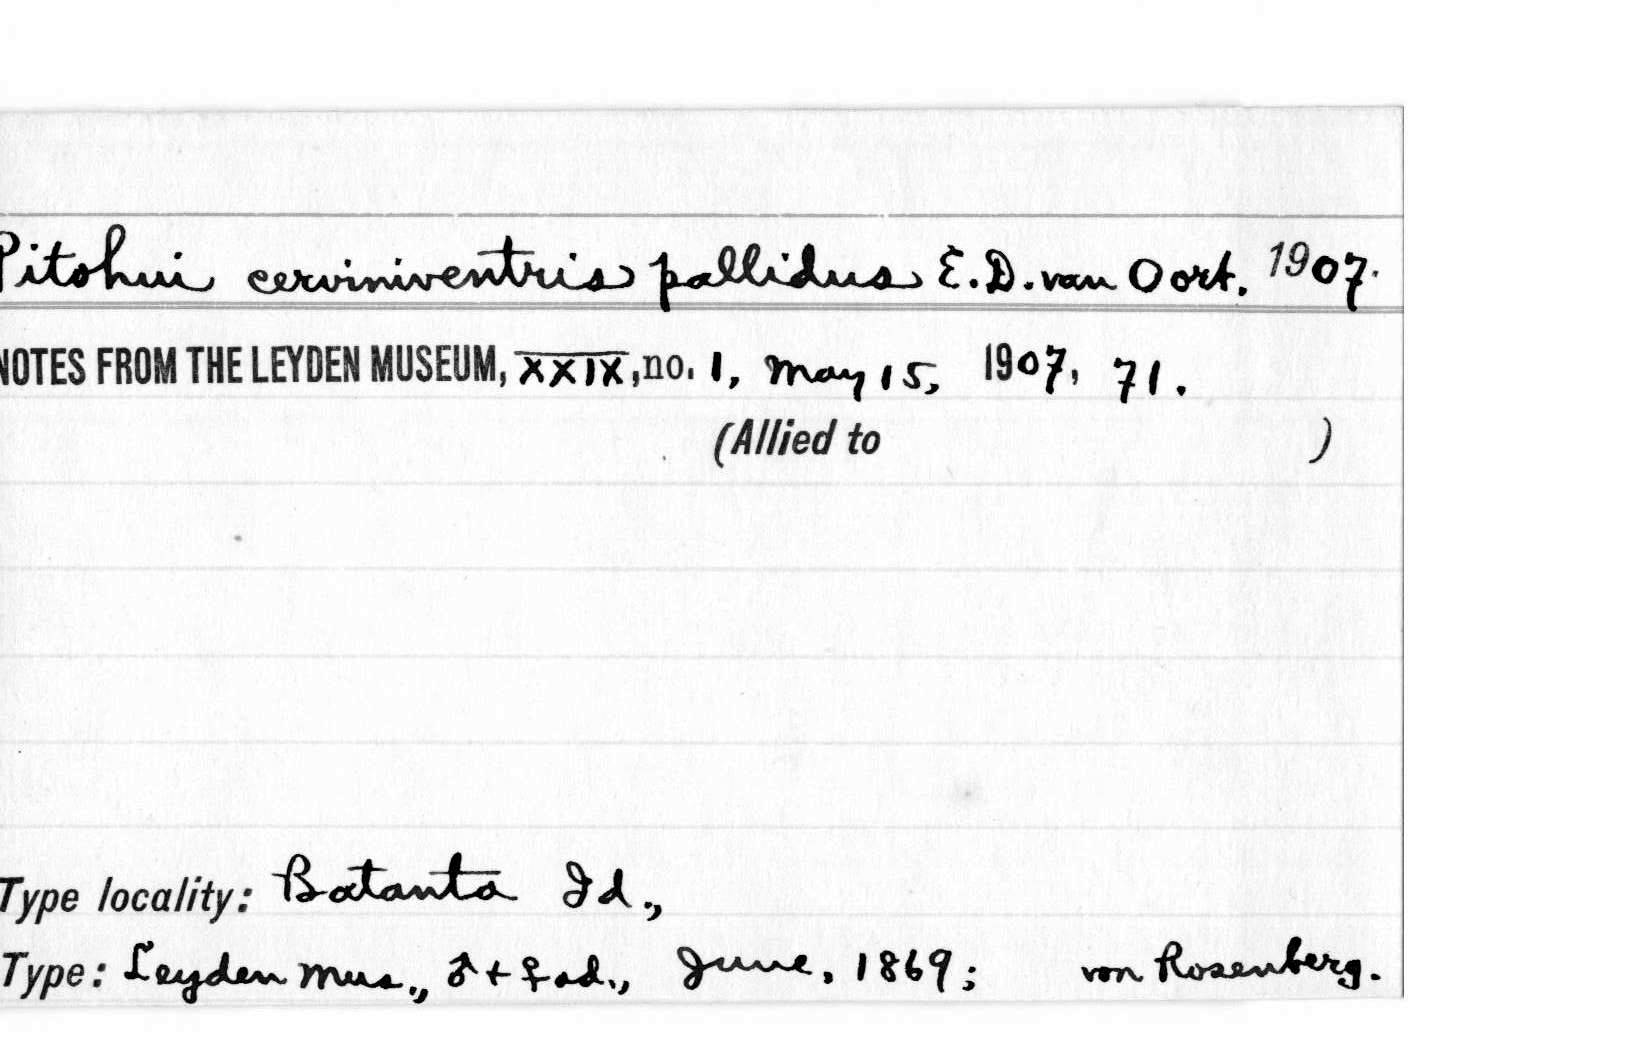 Pitohui cerviniventris pallidus E.D. van Oort. 1907.
NOTES FROM THE LEYDEN MUSEUM, XXIX, no. 1, May 15, 1907, 71.
(Allied to )
Type locality: Batanta Id.,
Type: Leyden Mus., ♂ + ♀ ad., June, 1869; von Rosenberg.